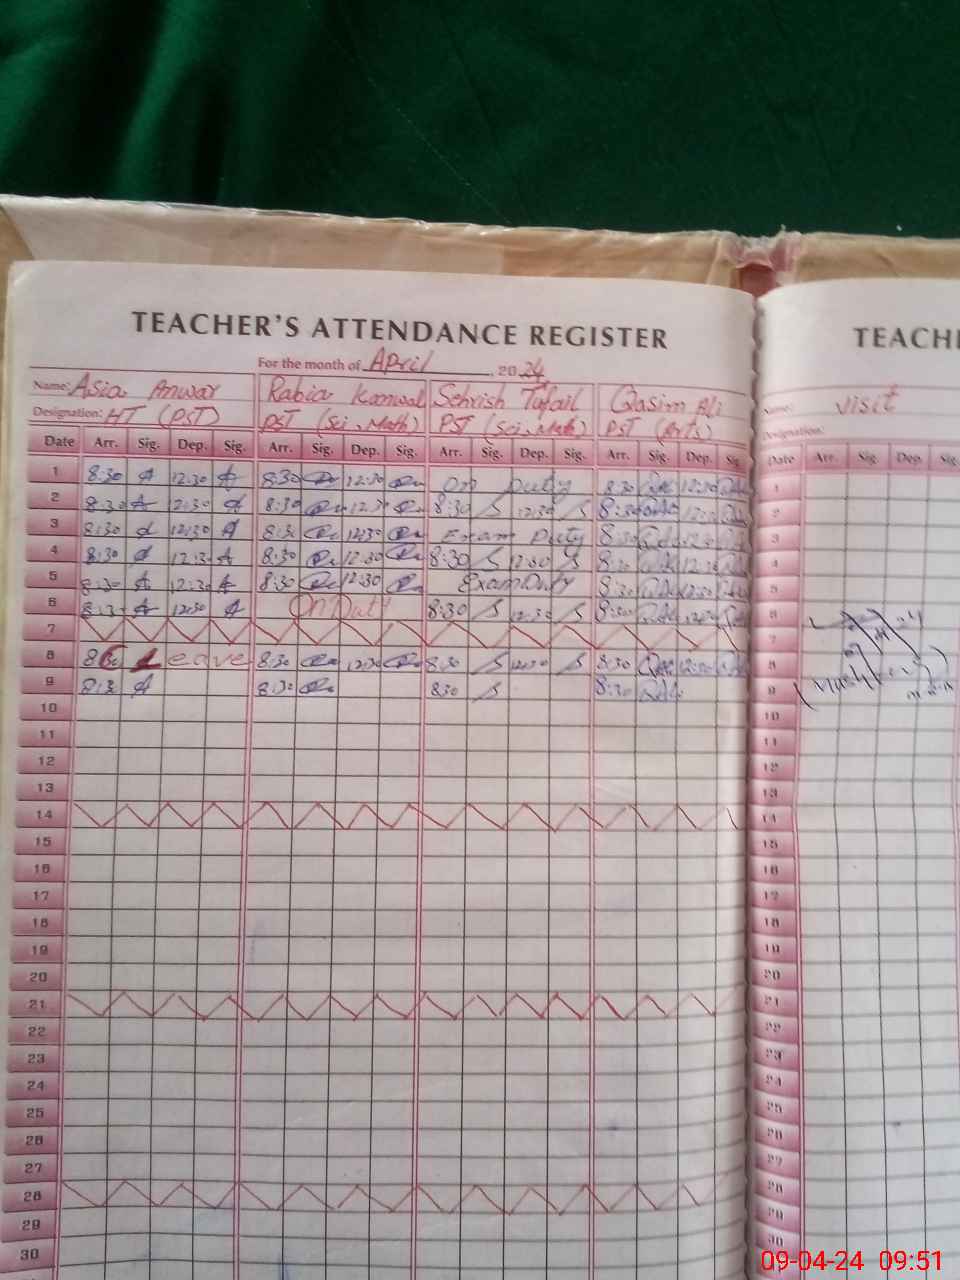 TEACHER'S ATTENDANCE REGISTER
For the month of April, 2024
Name: Asia Anwar Rabia Kanwal Sehrish Tufail Qasim Ali
Designation: HT (PST) PST (Sci, Math) PST (Sci, Math) PST (Arts)
Date Arr. Sig. Dep. Sig. Arr. Sig. Dep. Sig. Arr. Sig. Dep. Sig. Arr. Sig. Dep. Sig.
1 8:30 A 12:30 A 8:30 12:30 On Duty 8:30 12:30
2 8:30 A 12:30 A 8:30 12:30 8:30 S 12:30 S 8:30 12:30
3 8:30 A 12:30 A 8:30 12:30 Exam Duty 8:30 12:30
4 8:30 A 12:30 A 8:30 12:30 8:30 S 12:30 S 8:30 12:30
5 8:30 A 12:30 A 8:30 12:30 Exam Duty 8:30 12:30
6 8:30 A 12:30 A On Duty 8:30 S 12:30 S 8:30 12:30
7
8 Leave 8:30 12:30 8:30 S 12:30 S 8:30 12:30
9 8:30 A 8:30 8:30 S 8:30
10
11
12
13
14
15
16
17
18
19
20
21
22
23
24
25
26
27
28
29
30
TEACHE
Name: visit
Designation:
Date Arr. Sig. Dep. Sig.
1
2
3
4
5
6
7
8
9
10
11
12
13
14
15
16
17
18
19
20
21
22
23
24
25
26
27
28
29
30
09-04-24 09:51